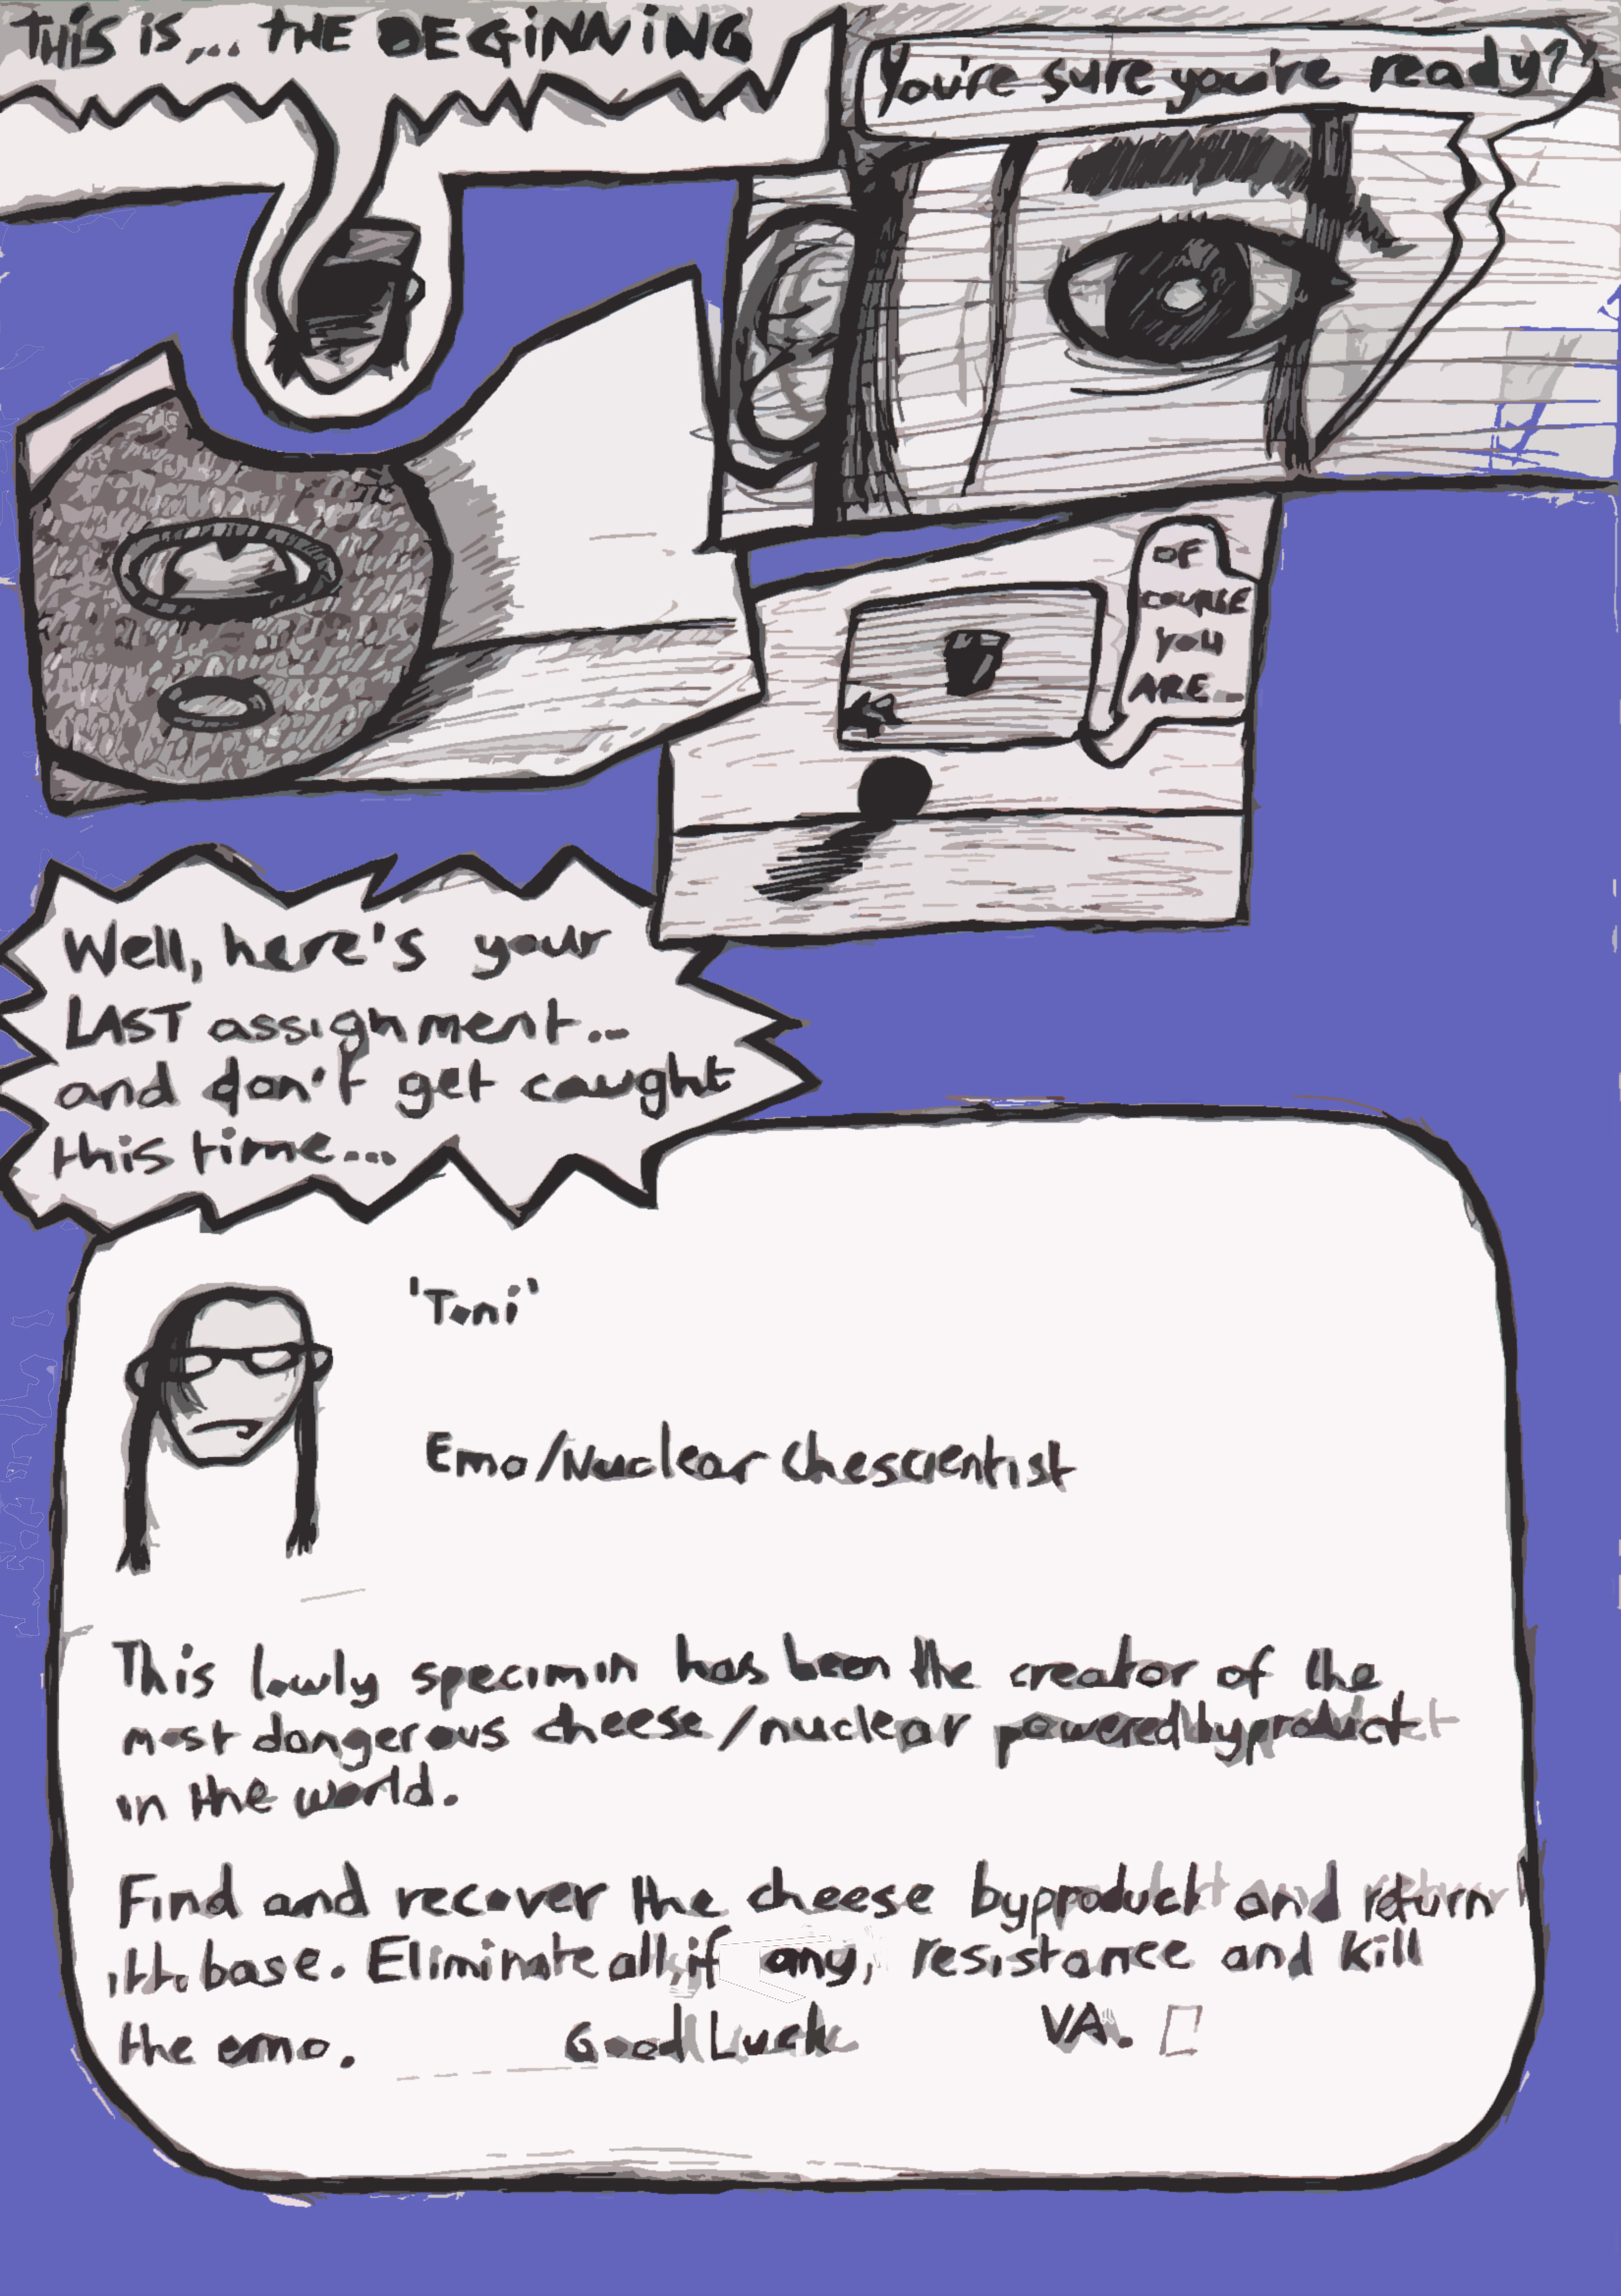 THIS IS... THE BEGINNING
You're sure you're ready?
OF
COURSE
YOU
ARE...
Well, here's your
LAST assignment...
and don't get caught
this time...
'Toni'
Emo/Nuclear Chescientist
This lowly specimin has been the creator of the
most dangerous cheese/nuclear powered byproduct
in the world.
Find and recover the cheese byproduct and return
base. Eliminate all, if any, resistance and kill
the emo. Good Luck VA.